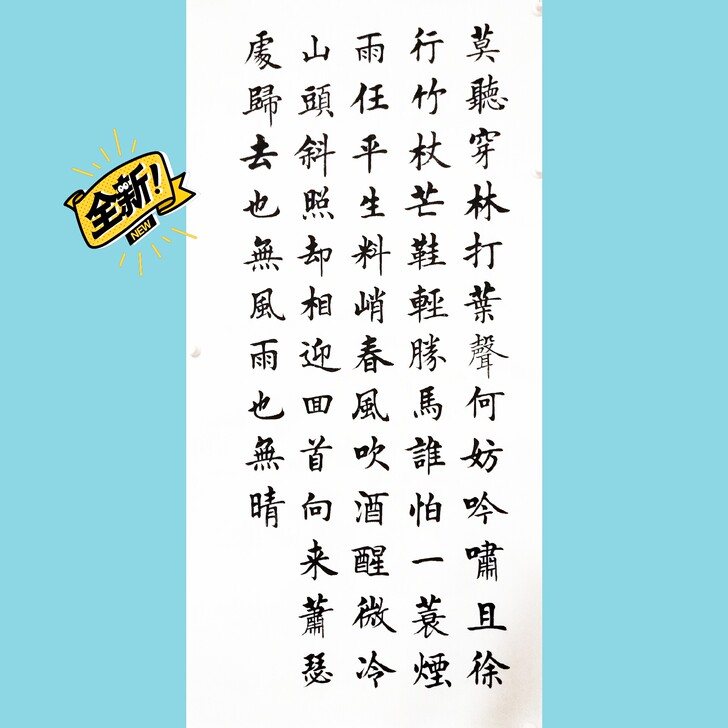 莫聽穿林打葉聲何妨吟嘯且徐
行竹杖芒鞋輕勝馬誰怕一蓑煙
雨任平生料峭春風吹酒醒微冷
山頭斜照却相迎回首向来蕭瑟
處歸去也無風雨也無晴
全新!
NEW